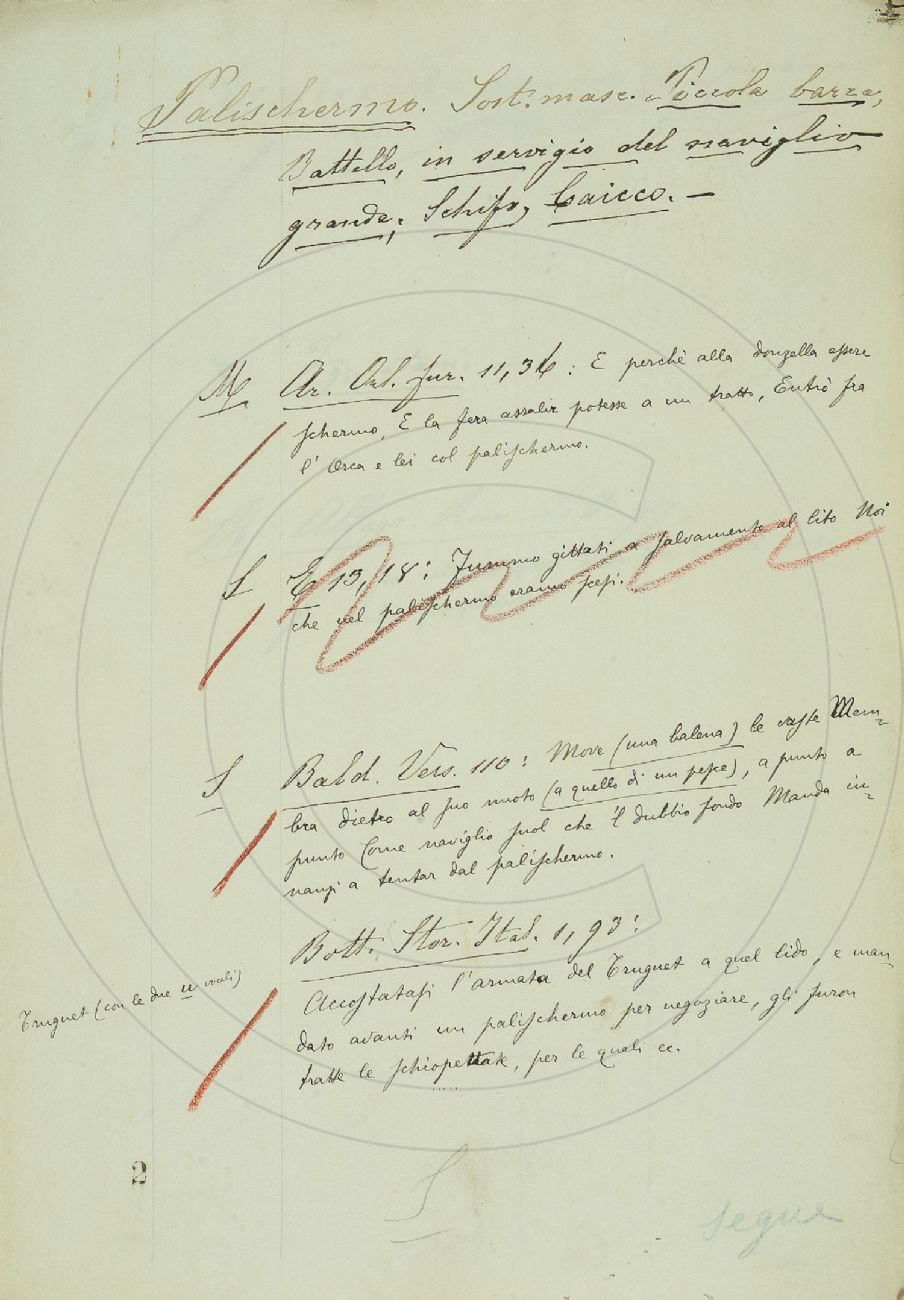 Palischermo. Sost. masc. Piccola barca,
Battello, in servigio del naviglio
grande; Schifo, Caicco. —
M Ar. Orl. fur. 11, 36: E perchè alla donzella essere
schermo, E la fera assalir potesse a un tratto, Entrò fra
l'Orca e lei col palischermo.
S E 13, 18: Fummo gittati a salvamento al lito Noi
che nel palischermo eramo scesi.
S Bald. Vers. 110: Move (una balena) le vaste Mem=
bra dietro al suo nuoto (a quello di un pesce), a punto a
punto Come naviglio suol che 'l dubbio fondo Manda in=
nanzi a tentar dal palischermo.
Bott. Stor. Ital. 1, 93:
Accostatasi l'armata del Truguet a quel lido, e man
dato avanti un palischermo per negoziare, gli furon
Truguet (con le due u vocali)
tratte le schiopettate, per le quali ec.
2
S
segue